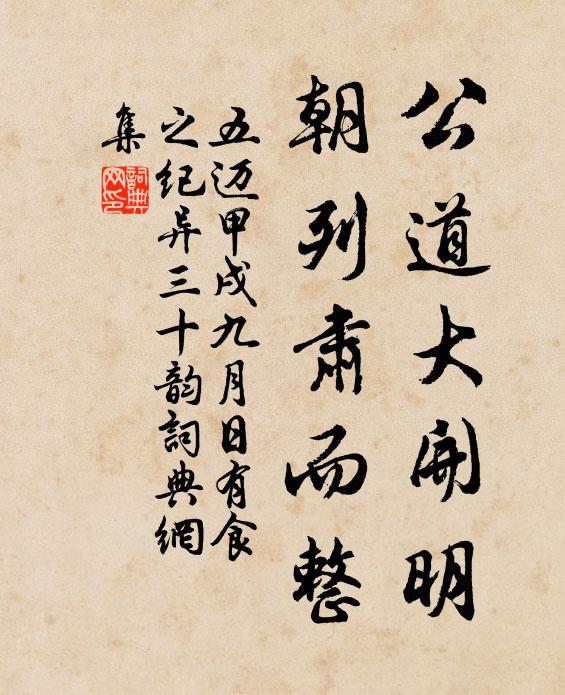 公道大開明
朝列肅而整
五迈甲戌九月日有食
之纪异三十韵詞典網
集
詞典
网印